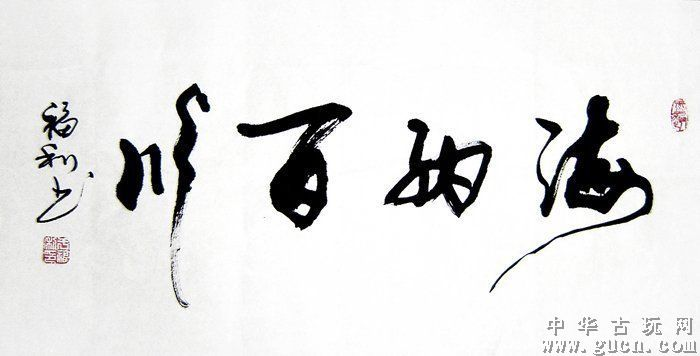 海纳百川
福利书
中华古玩网
www.gucn.com